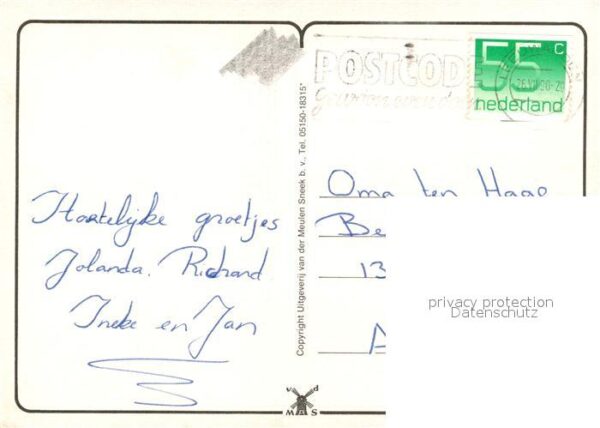 Hartelijke groetjes
Jolanda. Richard
Ineke en Jan
Copyright Uitgeverij van der Meulen Sneek b. v., Tel. 05150-18315*
v d
MAS
POSTCODE
55 c
nederland
Oma ten Haap
Be
13
A
privacy protection
Datenschutz